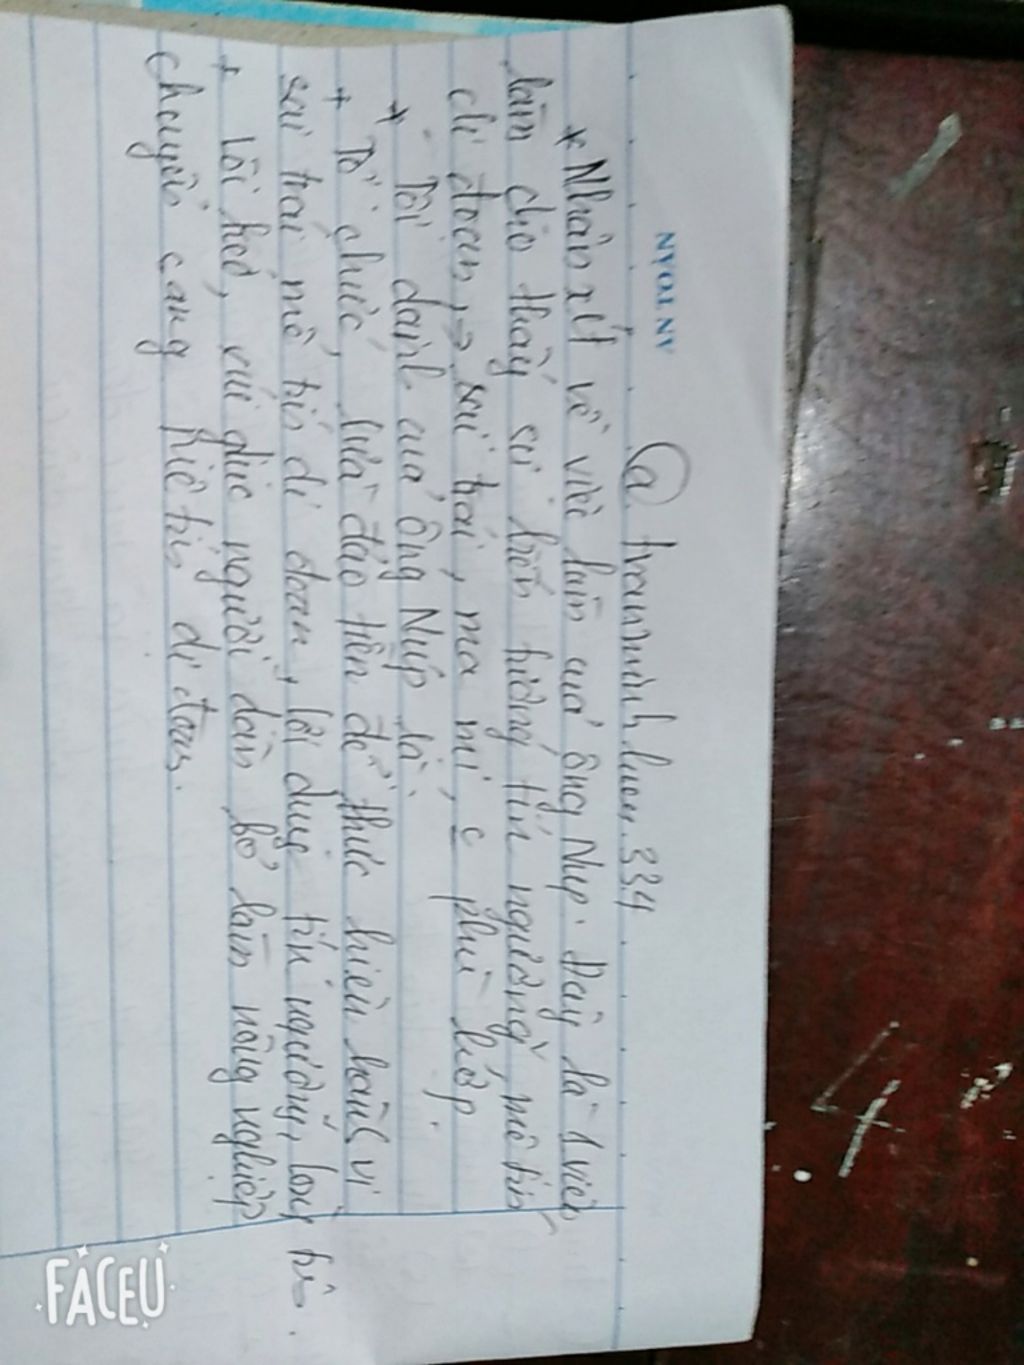 AN TOÀN
@ tranminhluen.334
* Nhận xét về việc làm của ông Nup. Đây là 1 việc
làm cho thấy sự tín ngưỡng, mê tín
dị đoan, => sai trái, ma mị, phù hợp
* Tội danh của ông Núp là:
+ Tổ chức, lừa đảo tiền để thực hiện hành vi
sai trái mê tín dị đoan, lợi dụng tín ngưỡng, lòng tin.
+ Lôi kéo, xúi giục người dân bỏ làm nông nghiệp
chuyển sang mê tín dị đoan.
FACEU